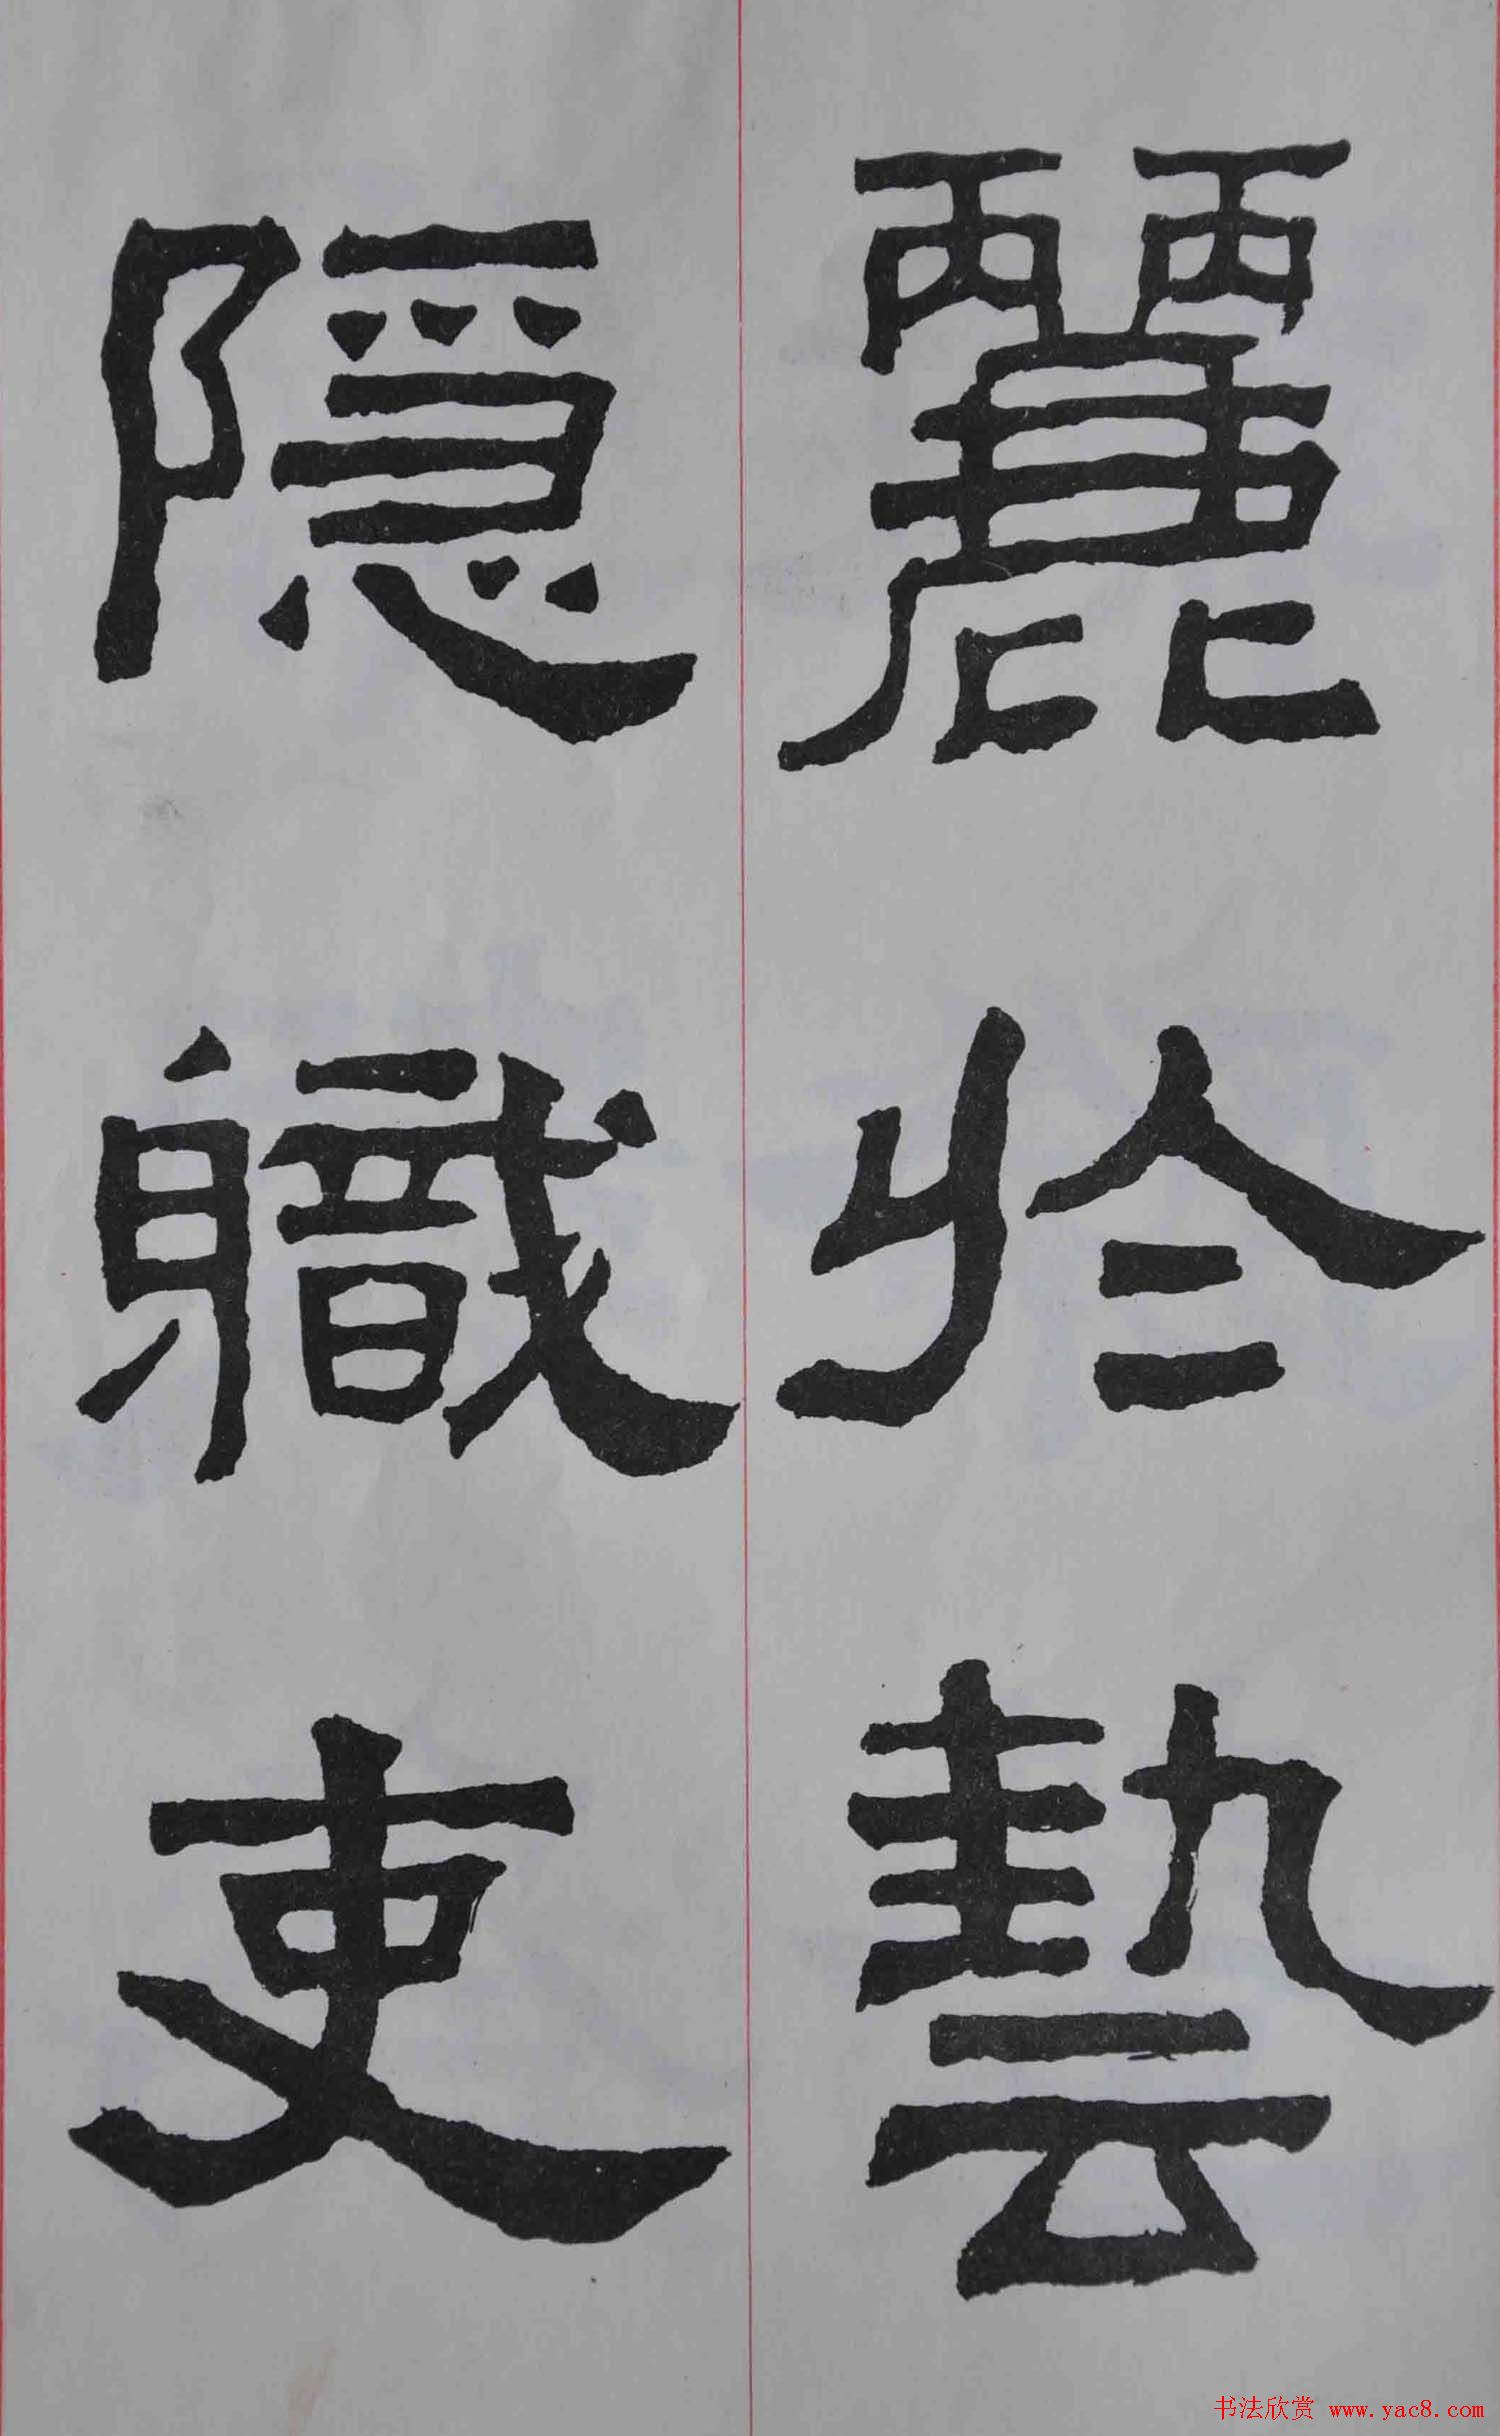 麗於藝
隱職吏
书法欣赏 www.yac8.com